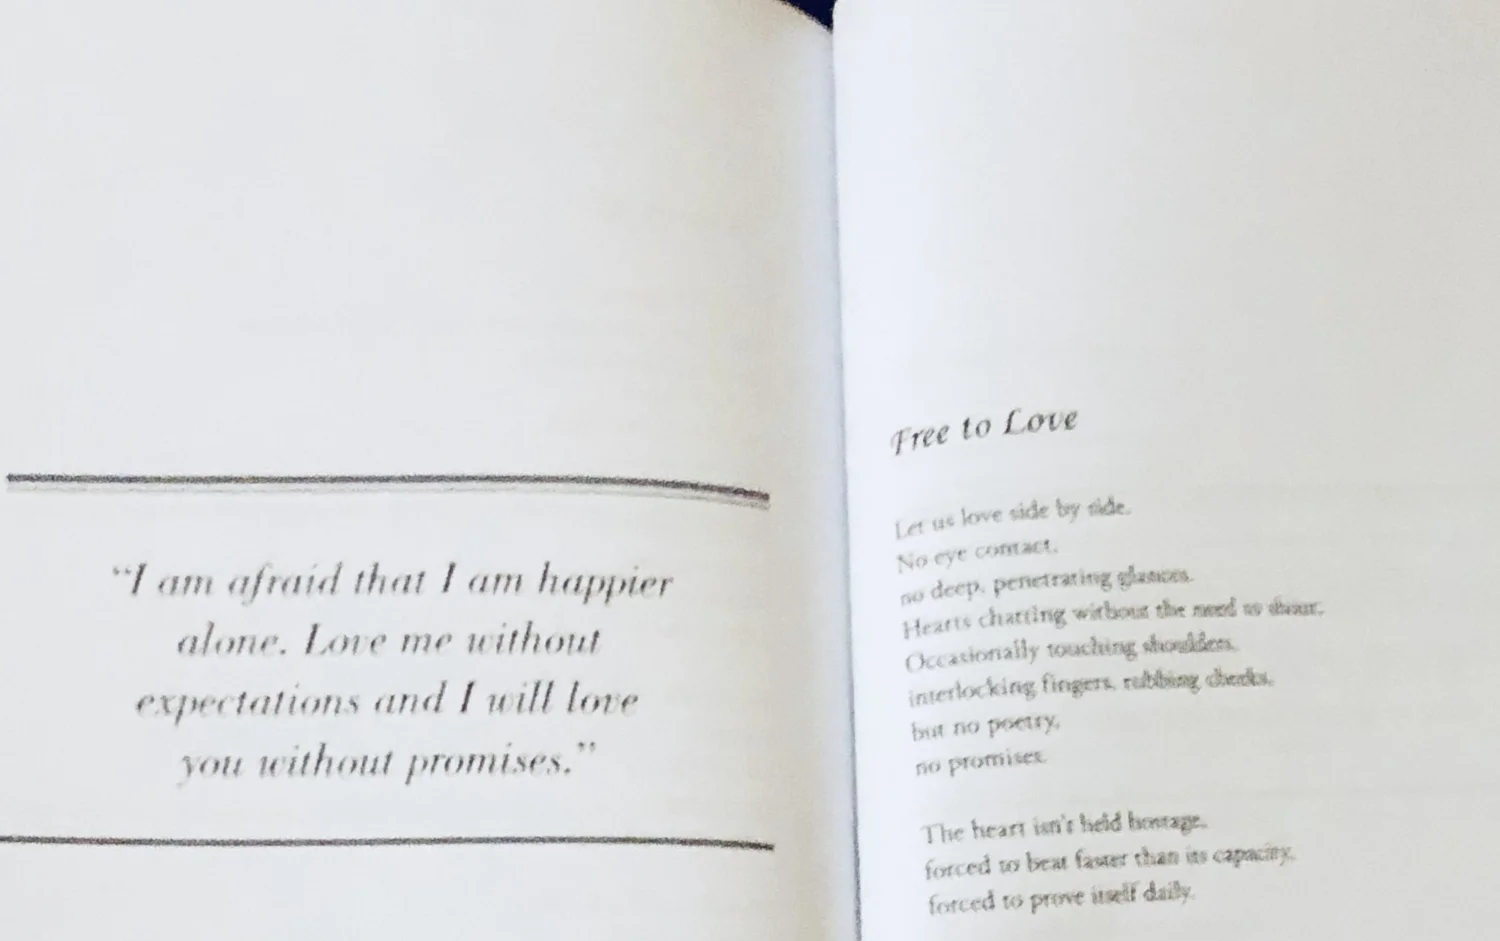 “I am afraid that I am happier
alone. Love me without
expectations and I will love
you without promises.”
Free to Love
Let us love side by side.
No eye contact,
no deep, penetrating glances.
Hearts chatting without the need to shout.
Occasionally touching shoulders,
interlocking fingers, rubbing cheeks,
but no poetry,
no promises.
The heart isn't held hostage,
forced to beat faster than its capacity,
forced to prove itself daily.